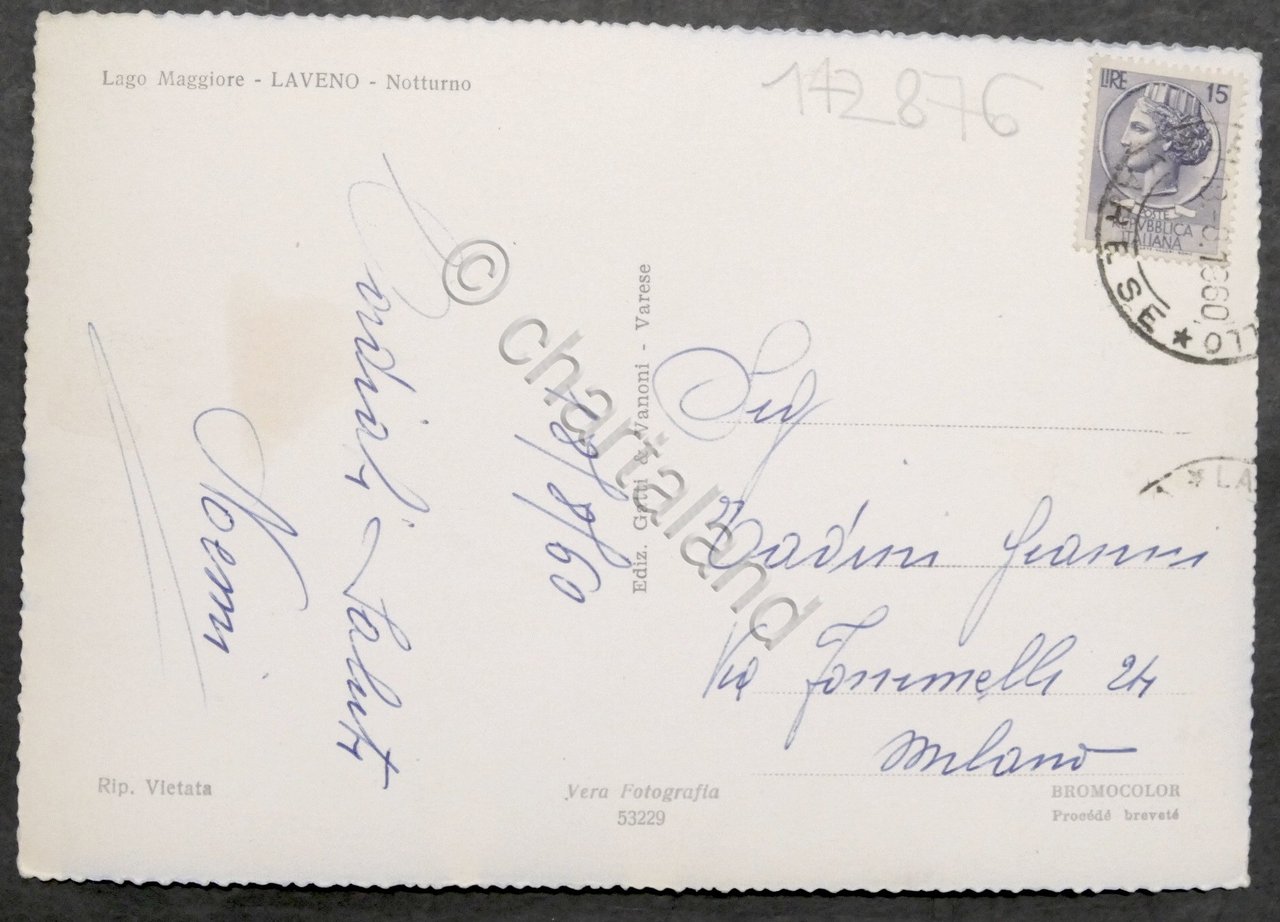 Lago Maggiore - LAVENO - Notturno
172876
LIRE 15
POSTE
REPVBBLICA
ITALIANA
VARESE
8.1960
LLO
LA
Cordiali Saluti
Noemi
18/8/60
Ediz. Gatti & Vanoni - Varese
© chartaland
Sig
Gianni
Via 24
Milano
Rip. Vietata
Vera Fotografia
53229
BROMOCOLOR
Procédé breveté